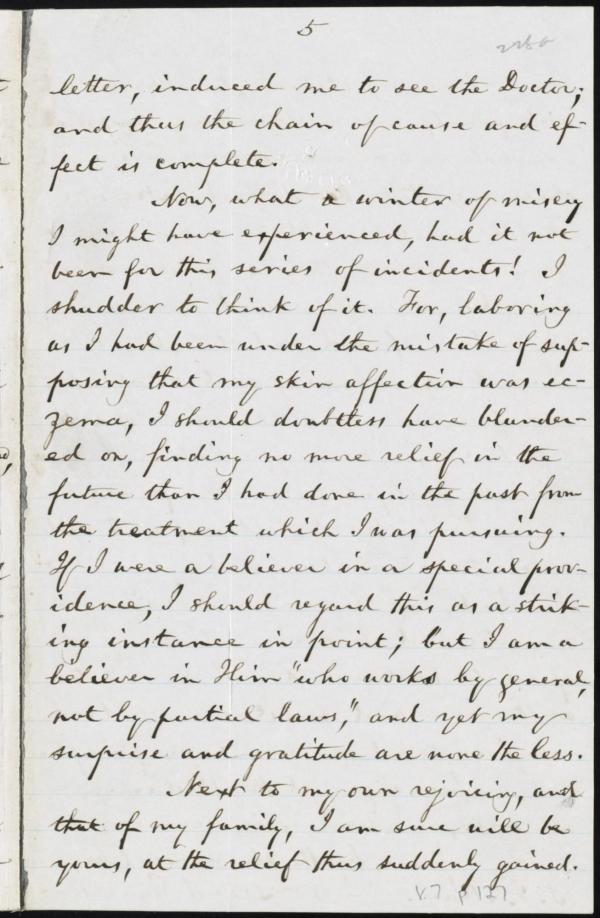 5
letter, induced me to see the Doctor;
and thus the chain of cause and ef-
fect is complete.
Now, what a winter of misery
I might have experienced, had it not
been for this series of incidents! I
shudder to think of it. For, laboring
as I had been under the mistake of sup-
posing that my skin affection was ec-
zema, I should doubtless have blunder-
ed on, finding no more relief in the
future than I had done in the past from
the treatment which I was pursuing.
If I were a believer in a special prov-
idence, I should regard this as a strik-
ing instance in point; but I am a
believer in Him "who works by general,
not by partial laws," and yet my
surprise and gratitude are none the less.
Next to my own rejoicing, and
that of my family, I am sure will be
yours, at the relief thus suddenly gained.
V.7 p 127